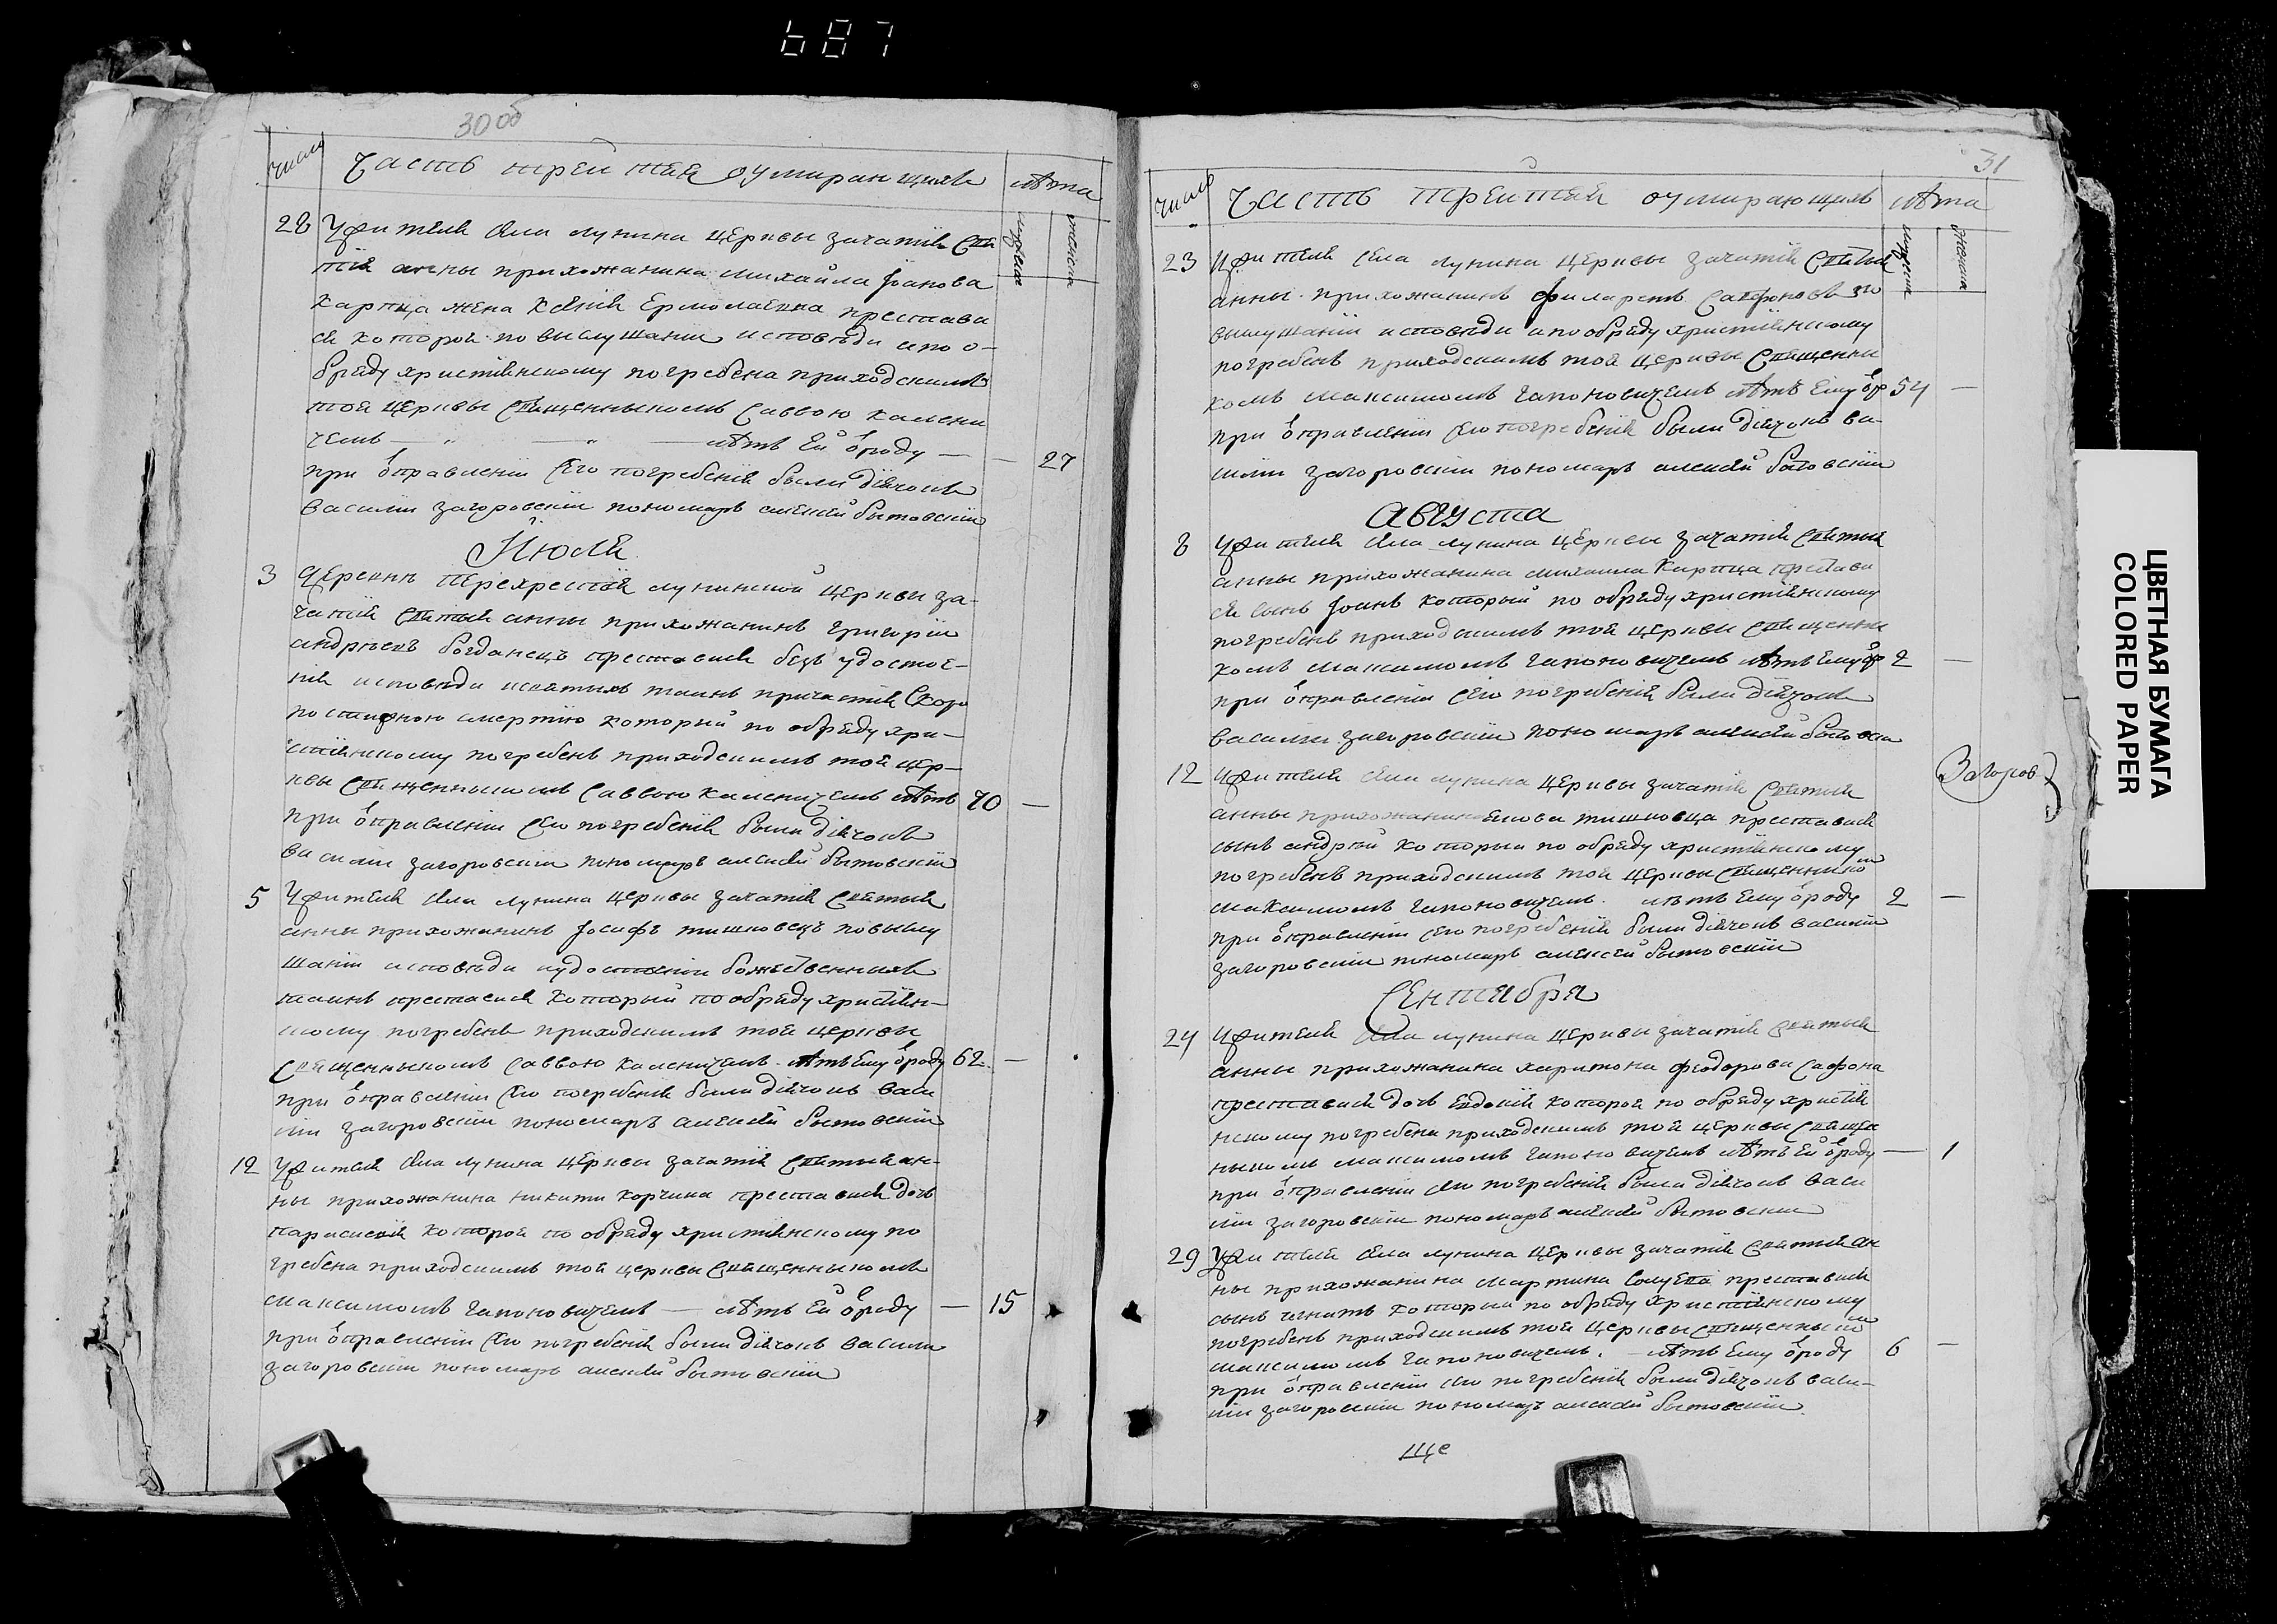 687
30 об
число Часть трейтяя оумирающихъ лѣта
мужеск женска
28 Уѣи тѣля села лунина церквы зачатія свя
тія анны прихожанина михайла Іоанова
карпца жена Ксенія Ермолаевна престави
ся которая по выслушании исповѣди и по о-
бряду христіянскому погребена приходскимъ
тоя церквы священныкомъ саввою калени
чемъ — — лѣтъ Ей ѿроду — — 27
при ѿправленіи Его погребенія были діячокъ
василіи загоровскіи пономаръ алексѣй бытовскіи
Июля
3 перехрестя лунинской церкви за-
чатія святыя анны прихожанинъ григоріи
андрѣевъ богданецъ преставися безъ удостое-
нія исповѣди и святихъ таинъ причастія скоро
постижною смертію который по обряду хри-
стіянскому погребенъ приходскимъ тоя цер-
квы священныкомъ саввою каленичемъ лѣтъ 70 —
при ѿправленіи Его погребенія были діячокъ
василіи загоровскіи пономаръ алексѣй бытовскіи
5 села лунина церквы зачатія святыя
анны прихожанинъ Іосифъ тишковецъ по выслу
шаніи исповѣди и удостоеніи божественнихъ
таинъ преставися который по обряду христіян-
скому погребенъ приходскимъ тоя церквы
священныкомъ саввою каленичемъ лѣтъ Ему ѿроду 62 —
при ѿправленіи Его погребенія были діячокъ васи
ліи загоровскіи пономаръ алексѣй бытовскіи
12 села лунина церквы зачатія святыя ан-
ны прихожанина никити корчика преставися дочь
параскевія которая по обряду христіянскому по
гребена приходскимъ тоя церквы священныкомъ
максимомъ гапоновичемъ — лѣтъ Ей ѿроду — 15
при ѿправленіи Его погребенія были діячокъ василіи
загоровскіи пономаръ алексѣй бытовскіи
31
число Часть трейтяя оумирающихъ лѣта
мужеск женска
23 села лунина церквы зачатія святыя
анны прихожанинъ филаретъ сафоновъ по
выслушаніи исповѣди и по обряду христіянскому
погребенъ приходскимъ тоя церквы священни
комъ максимомъ гапоновичемъ лѣтъ Ему ѿр 54 —
при ѿправленіи Его погребенія были діячокъ ва-
силіи загоровскіи пономаръ алексѣй бытовскіи
Августа
8 села лунина церквы зачатія святыя
анны прихожанина михаила Карпца престави
ся сынъ Іоанъ который по обряду христіянскому
погребенъ приходскимъ тоя церквы священни
комъ максимомъ гапоновичемъ лѣтъ Ему ѿр 2 —
при ѿправленіи Его погребенія были діячокъ
василіи загоровскіи пономаръ алексѣй бытовски
Загоров
12 села лунина церквы зачатія святыя
анны прихожанина тишковца преставися
сынъ андрѣй которыи по обряду христіянскому
погребенъ приходскимъ тоя церквы священныком
максимомъ гапоновичемъ. лѣтъ Ему ѿроду 2 —
при ѿправленіи Его погребенія были діячокъ василіи
загоровскіи пономаръ алексѣй бытовскіи
Сентября
24 села лунина церквы зачатія святыя
анны прихожанина харитона феодорова сафона
преставися дочь Евдокія которая по обряду христія
нскому погребена приходскимъ тоя церквы священ
ныкомъ максимомъ гапоновичемъ лѣтъ Ей ѿроду — 1
при ѿправленіи Его погребенія были діячокъ васи
ліи загоровскіи пономаръ алексѣй бытовскіи
29 села лунина церквы зачатія святыя ан
ны прихожанина мартина преставися
сынъ игнатъ которыи по обряду христіянскому
погребенъ приходскимъ тоя церквы священныком
максимомъ гапоновичемъ. — лѣтъ Ему ѿроду 6 —
при ѿправленіи Его погребенія были діячокъ васи-
ліи загоровскіи пономаръ алексѣй бытовскіи
ЦВЕТНАЯ БУМАГА
COLORED PAPER